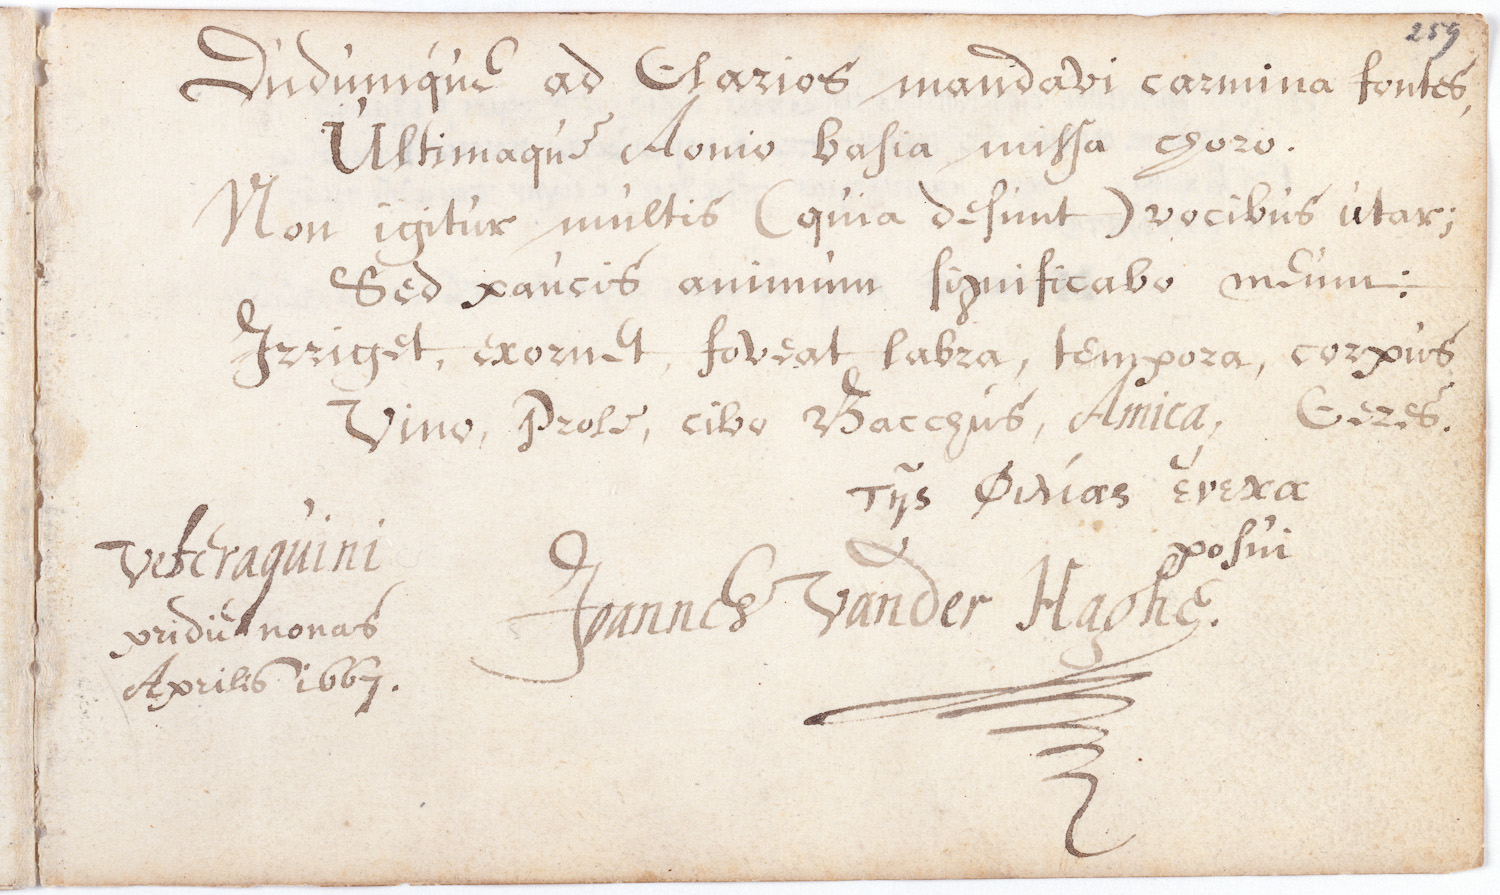 259
Dudumque ad Clarios mandavi carmina fontes,
Ultimaque Aonio basia missa choro.
Non igitur multis (quia desunt) vocibus utar;
Sed paucis animum significabo meum:
Irriget, exornet, foveat labra, tempora, corpus
Vino, Prole, cibo Bacchus, Amica, Ceres.
τῆς Φιλίας ἕνεκα
posui
Joannes Vander Haghe.
Veteraquini
pridie nonas
Aprilis 1667.